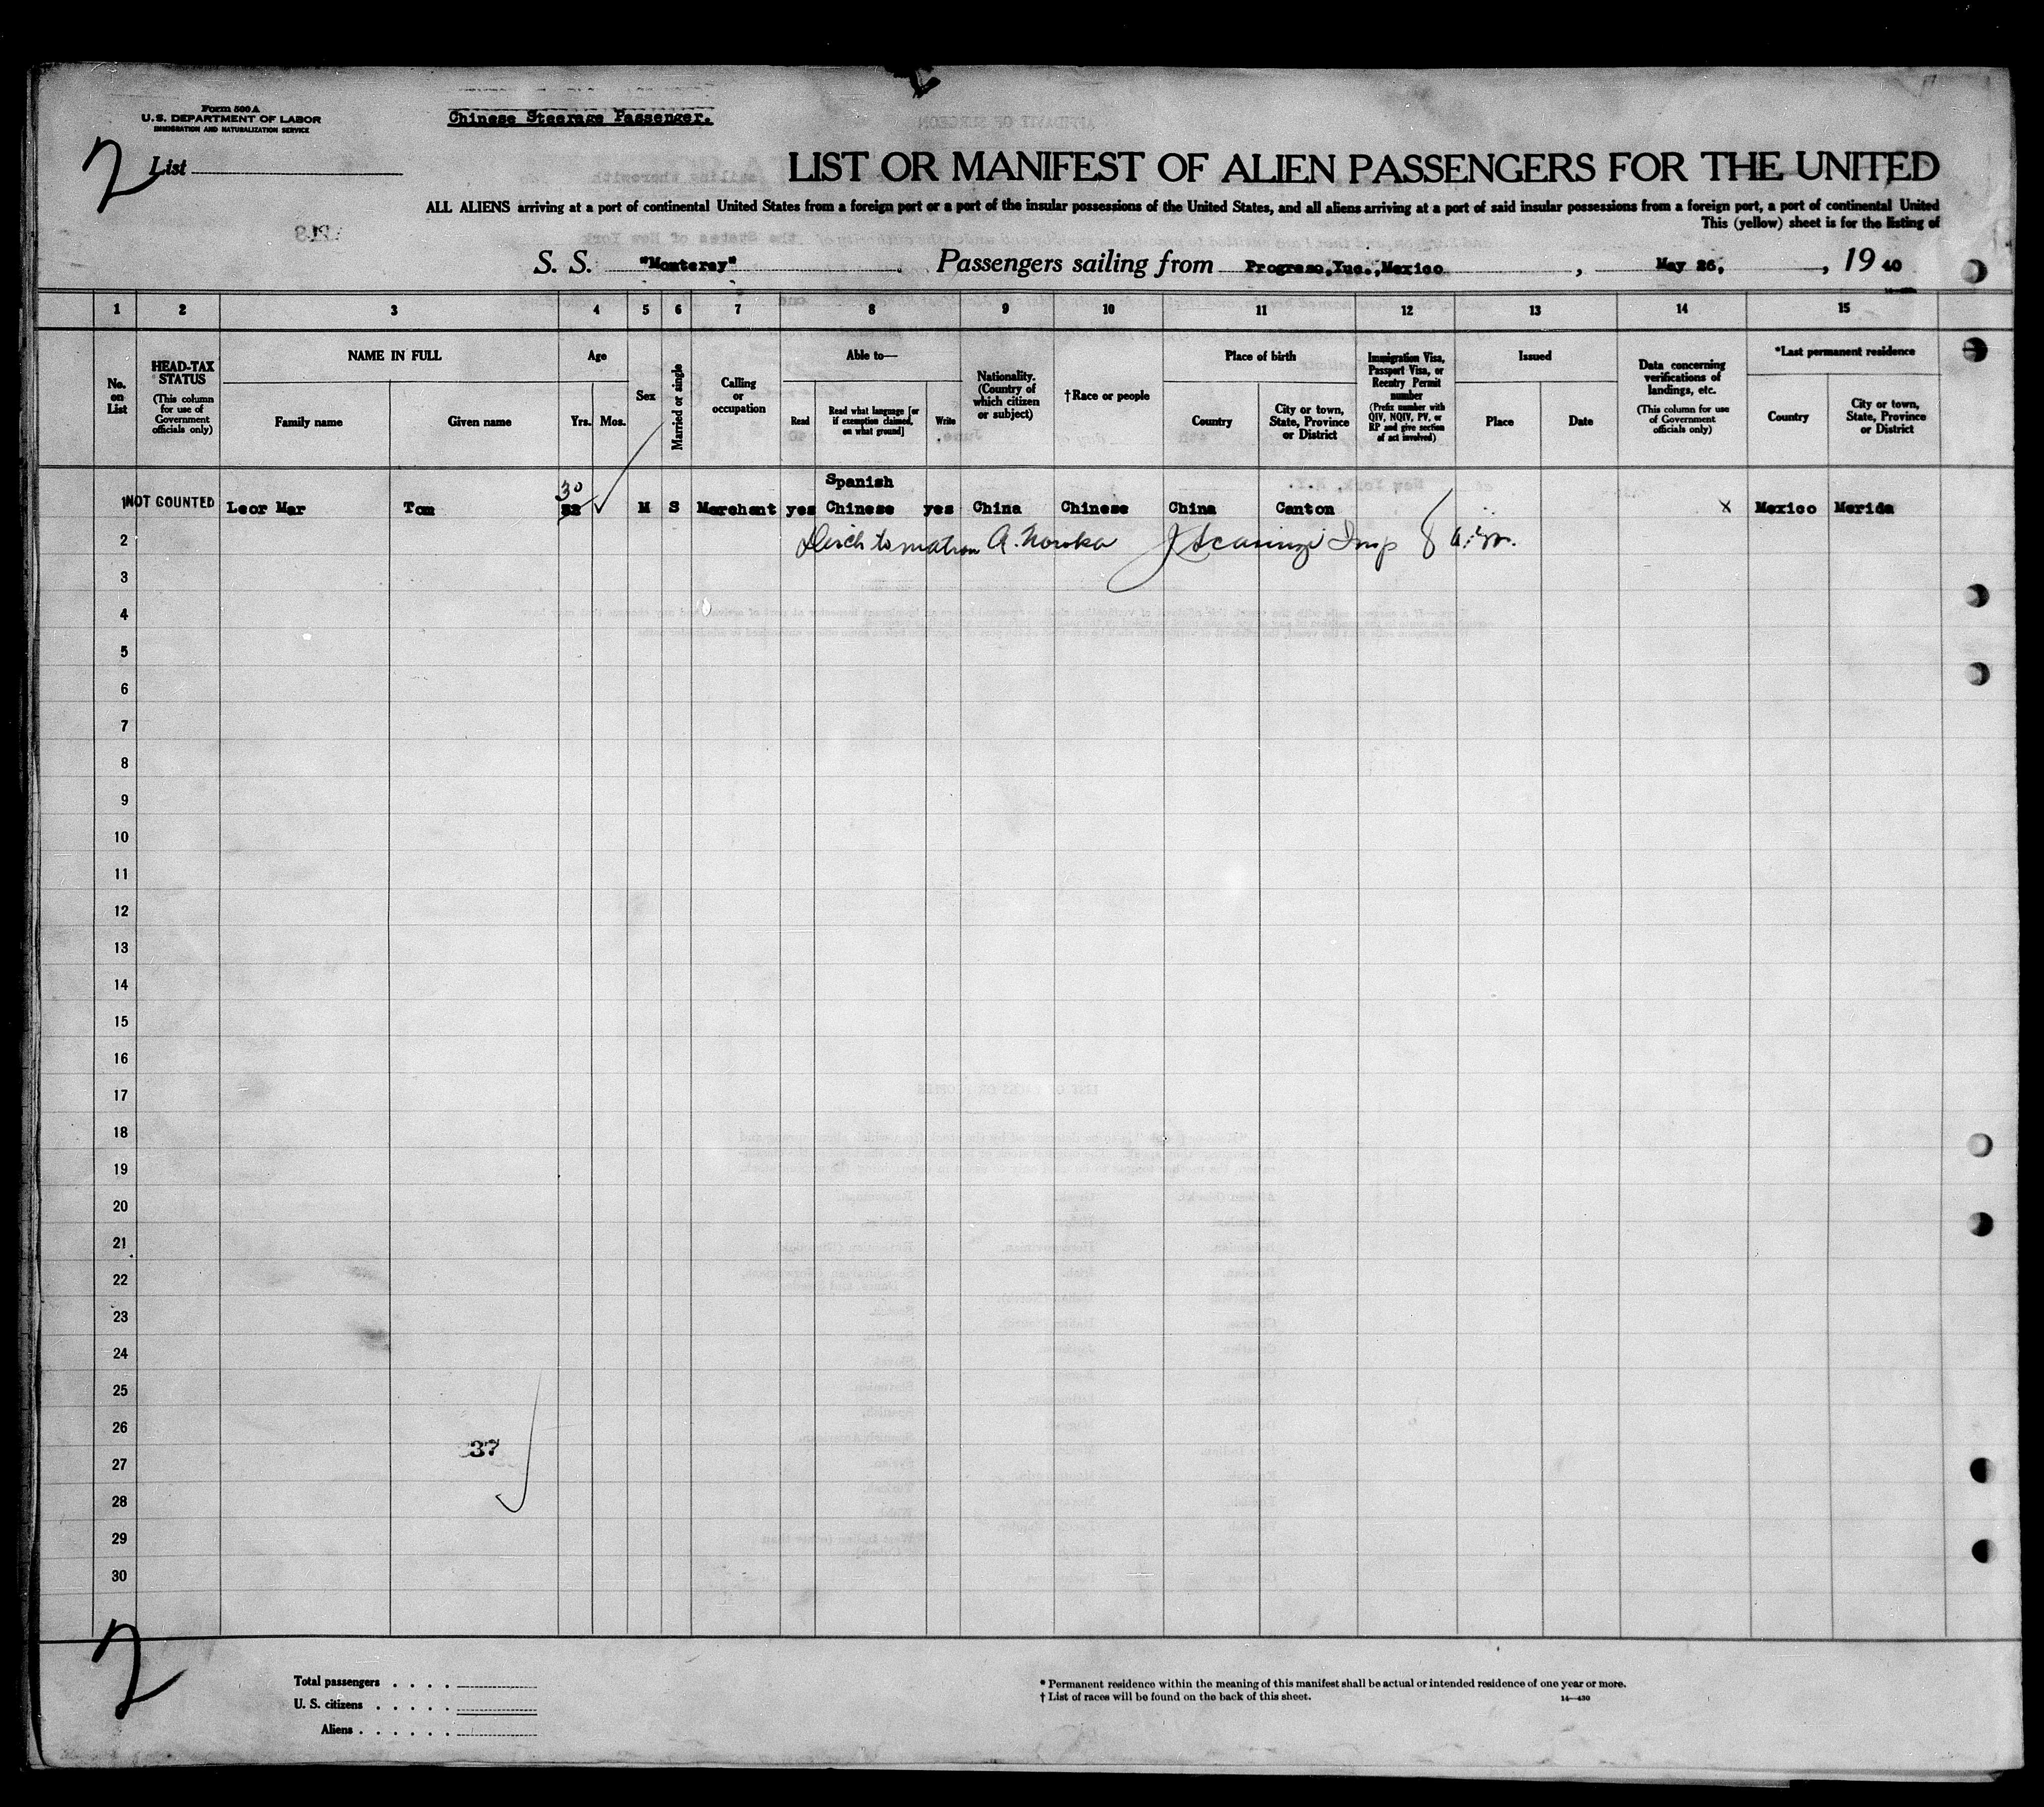 Form 500 A
U.S. DEPARTMENT OF LABOR
IMMIGRATION AND NATURALIZATION SERVICE
Chinese Steerage Passenger.
2
List
LIST OR MANIFEST OF ALIEN PASSENGERS FOR THE UNITED
ALL ALIENS arriving at a port of continental United States from a foreign port or a port of the insular possessions of the United States, and all aliens arriving at a port of said insular possessions from a foreign port, a port of continental United
This (yellow) sheet is for the listing of
S. S. "Monterey" Passengers sailing from Progreso, Yuc., Mexico, May 26, 1940
1 2 3 4 5 6 7 8 9 10 11 12 13 14 15
No. on List
HEAD-TAX STATUS
(This column for use of Government officials only)
NAME IN FULL
Family name
Given name
Age
Yrs. Mos.
Sex
Married or single
Calling or occupation
Able to—
Read
Read what language [or if exemption claimed, on what ground]
Write
Nationality. (Country of which citizen or subject)
†Race or people
Place of birth
Country
City or town, State, Province or District
Immigration Visa, Passport Visa, or Reentry Permit number
(Prefix number with QIV, NQIV, PV, or RP and give section of act involved)
Issued
Place
Date
Data concerning verifications of landings, etc.
(This column for use of Government officials only)
*Last permanent residence
Country
City or town, State, Province or District
30 Spanish
1 NOT COUNTED Leor Mar Tom M S Merchant yes Chinese yes China Chinese China Canton x Mexico Merida
2 Disch to matron A.
3
4
5
6
7
8
9
10
11
12
13
14
15
16
17
18
19
20
21
22
23
24
25
26
37
27
28
29
30
2
Total passengers
U. S. citizens
Aliens
* Permanent residence within the meaning of this manifest shall be actual or intended residence of one year or more.
† List of races will be found on the back of this sheet.
14—430